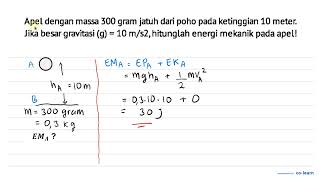 Apel dengan massa 300 gram jatuh dari poho pada ketinggian 10 meter.
Jika besar gravitasi (g) = 10 m/s2, hitunglah energi mekanik pada apel!
A
h_A = 10m
B
m = 300 gram
= 0,3 kg
EM_A ?
EM_A = EP_A + EK_A
= mgh_A + 1/2 mv_A^2
= 0,3.10.10 + 0
= 30 J
co learn